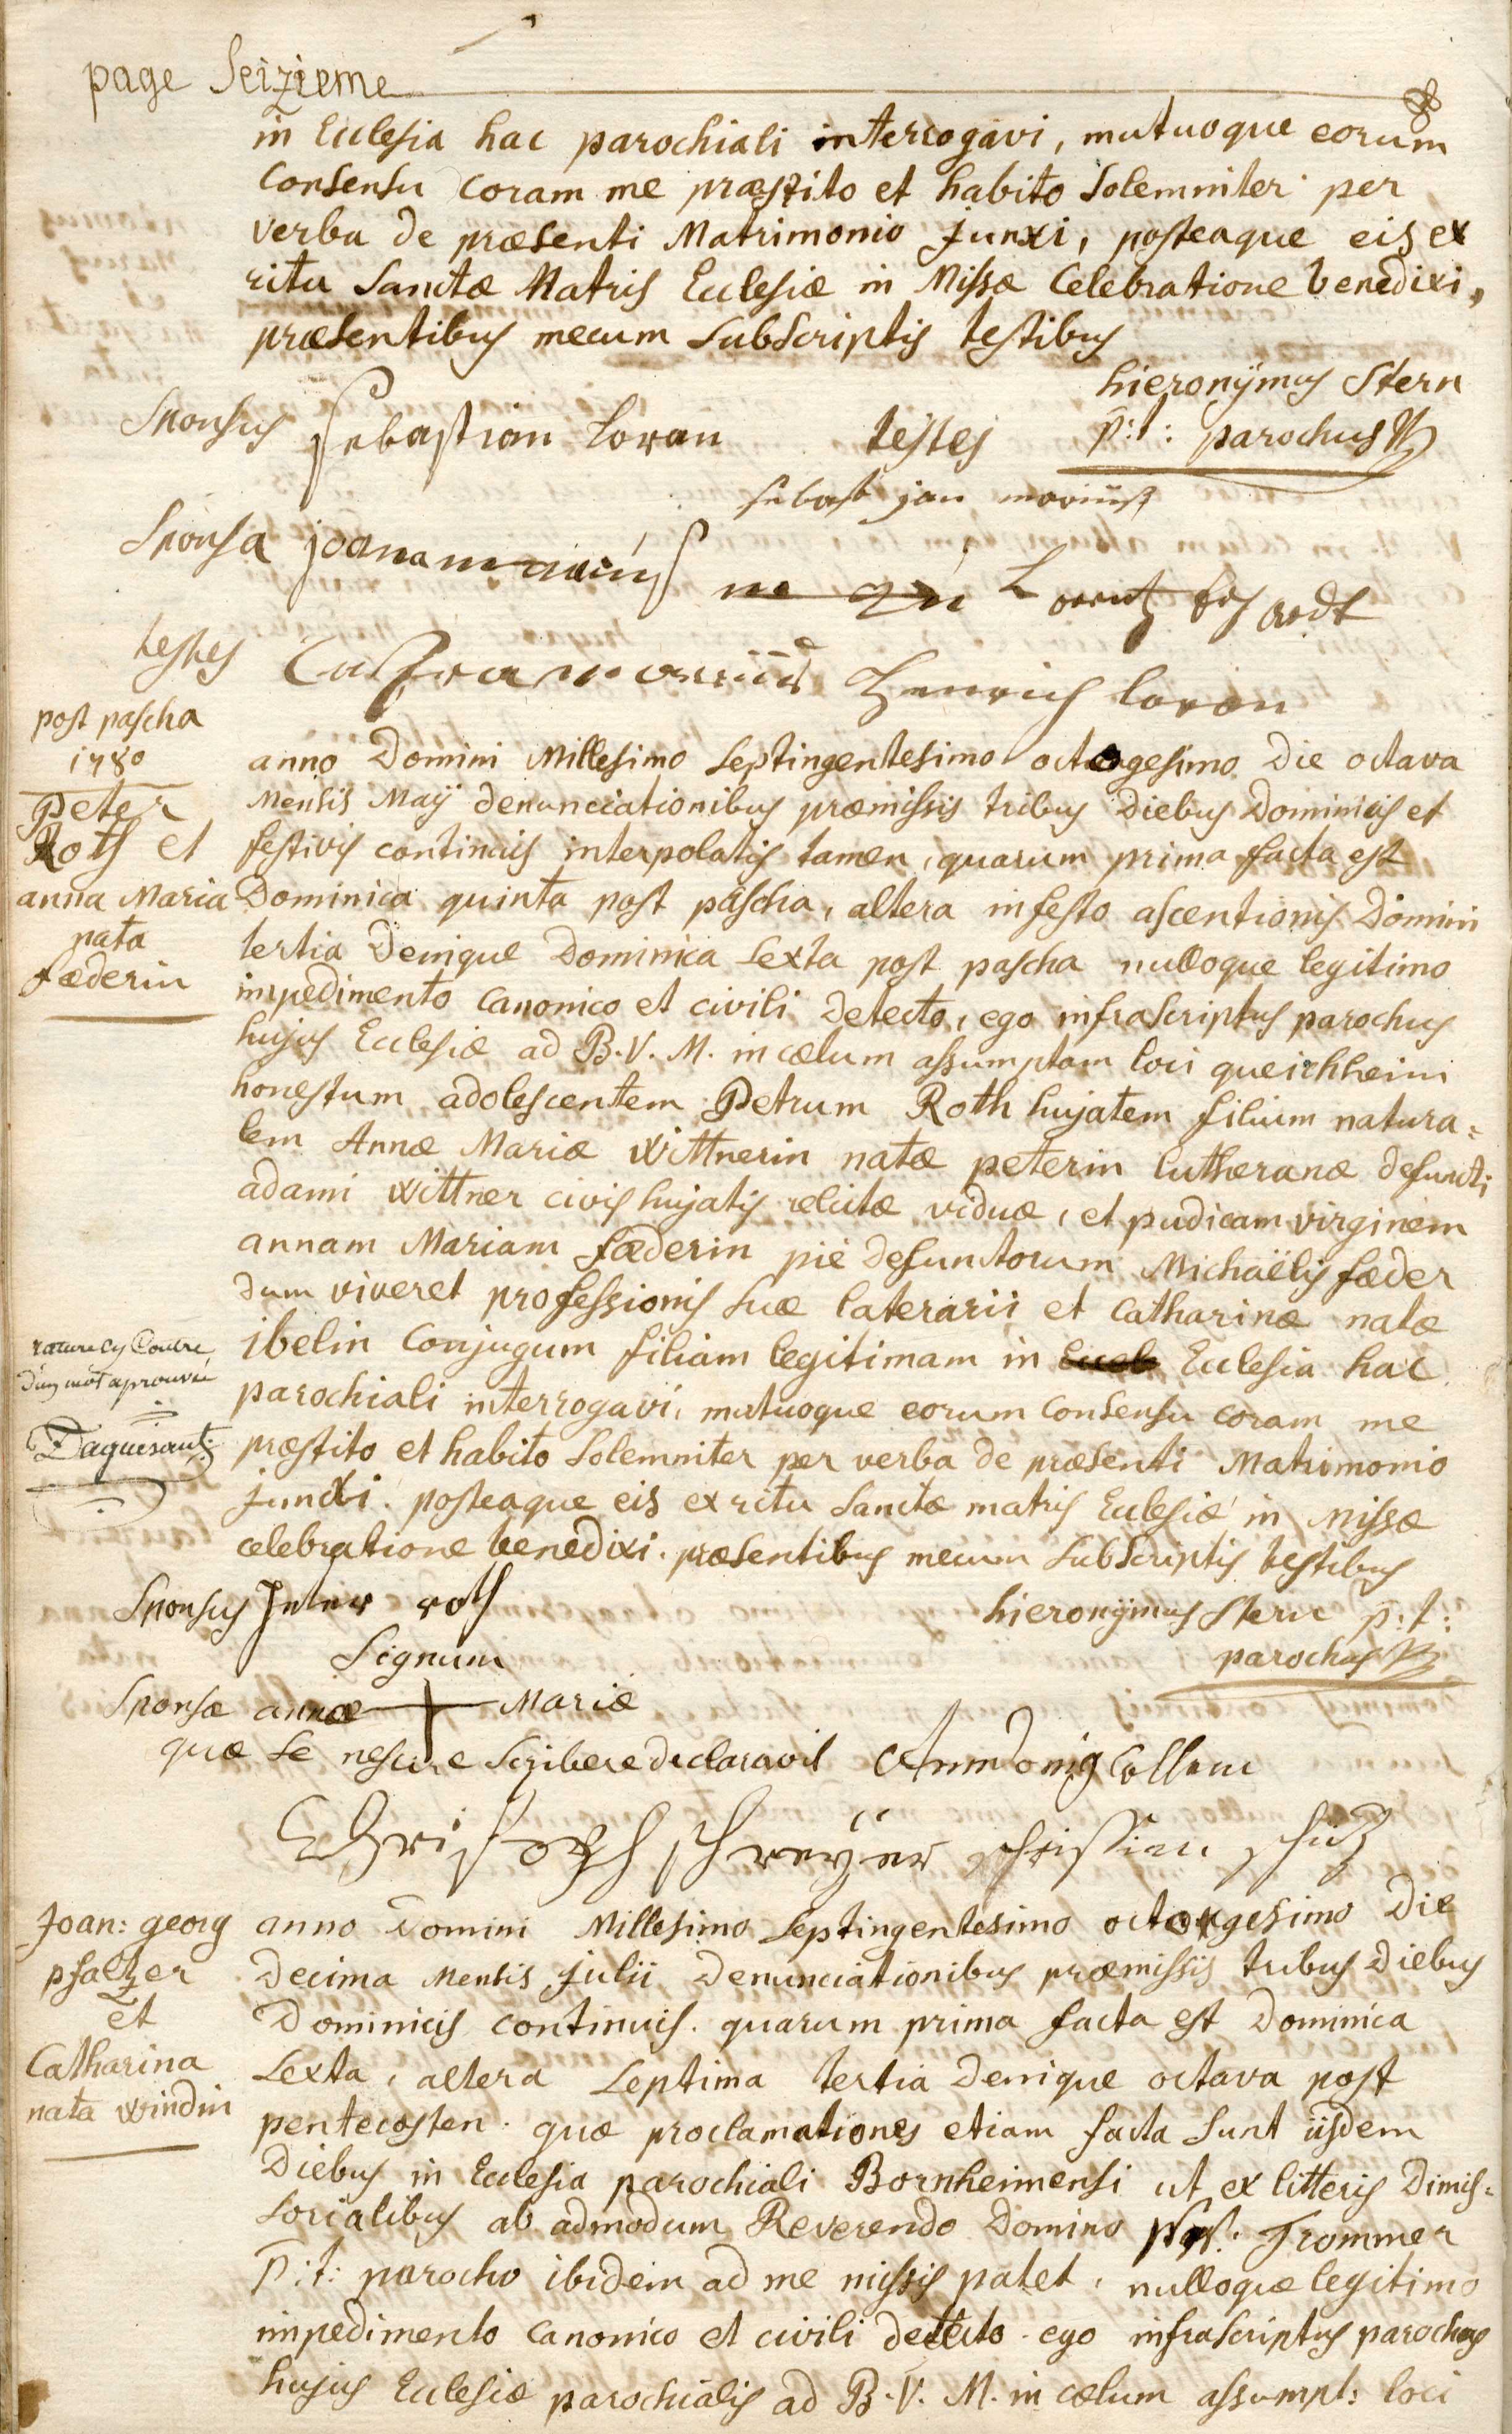 page Seizieme
in Ecclesia hac parochiali interrogavi, mutuoque eorum
Consensu coram me præstito et habito Solemniter per
verba de præsenti Matrimonio junxi, posteaque eis ex
ritu Sanctæ Matris Ecclesiæ in Missæ Celebratione benedixi,
præsentibus mecum Subscriptis testibus
hieronÿmus Stern
p:t: parochus
Sponsus Sebastian Loran testes
Sponsa
testes
Henrich loran
post pascha
1780
Peter
Roth et
anna Maria
nata
fæderin
anno Domini Millesimo Septingentesimo octogesimo Die octava
Mensis Maÿ denunciationibus præmissis tribus Diebus Dominicis et
festivis continuis interpolatis tamen, quarum prima facta est
Dominica quinta post pascha, altera in festo ascentionis Domini
tertia Denique Dominica Sexta post pascha nulloque legitimo
impedimento Canonico et civili Detecto, ego infraScriptus parochus
hujus Ecclesiæ ad B.V.M. in cælum assumptam loci queichheim
honestum adolescentem Petrum Roth hujatem filium natura=
lem Annæ Mariæ Wittnerin natæ peterin lutheranæ defuncti
adami Wittner civis hujatis relictæ viduæ, et pudicam virginem
annam Mariam fæderin pie defunctorum Michaëlis fæder
dum viveret professionis Suæ laterarii et Catharinæ natæ
ibelin Conjugum filiam legitimam in Ecclesia hac
parochiali interrogavi, mutuoque eorum Consensu coram me
præstito et habito Solemniter per verba de præsenti Matrimonio
junxi. posteaque eis ex ritu Sanctæ matris Ecclesiæ in Missæ
celebratione benedixi. præsentibus mecum Subscriptis testibus
rature cy Contre
d'un mot aprouvée
Daguesant
hieronÿmus Stern p:t:
parochus
Sponsus Peter roth
Signum
Sponsæ annæ Mariæ
quæ Se nescire Scribere declaravit
Christoph schreÿer
Joan: georg
pfaltzer
et
Catharina
nata windin
anno Domini Millesimo Septingentesimo octogesimo Die
Decima Mensis julii Denunciationibus præmissis tribus Diebus
Dominicis continuis. quarum prima facta est Dominica
Sexta, altera Septima tertia Denique octava post
pentecosten. quæ proclamationes etiam facta Sunt iisdem
Diebus in Ecclesia parochiali Bornheimensi ut ex litteris Dimis=
Sorialibus ab admodum Reverendo Domino Trommer
P:t: parocho ibidem ad me missis patet, nulloque legitimo
impedimento Canonico et civili detecto. ego infraScriptus parochus
hujus Ecclesiæ parochialis ad B.V.M. in cælum assumpt: loci